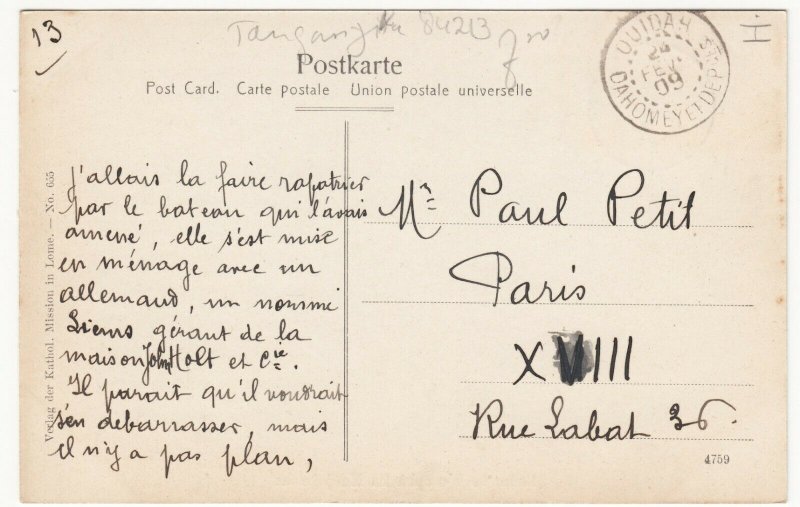 13
Tanganyka 84213
Postkarte
Post Card. Carte postale Union postale universelle
OUIDAH
24
FEV.
09
DAHOMEY ET DEP.
Verlag der Kathol. Mission in Lome. — No. 655
J'allais la faire rapatrier
par le bateau qui l'avais
amené, elle s'est mise
en ménage avec un
allemand, un nommé
Siems gérant de la
maison John Holt et Cie.
Il parait qu'il voudrait
s'en debarrasser, mais
il n'y a pas plan,
Mr Paul Petit
Paris
XVIII
Rue Labat 36.
4759